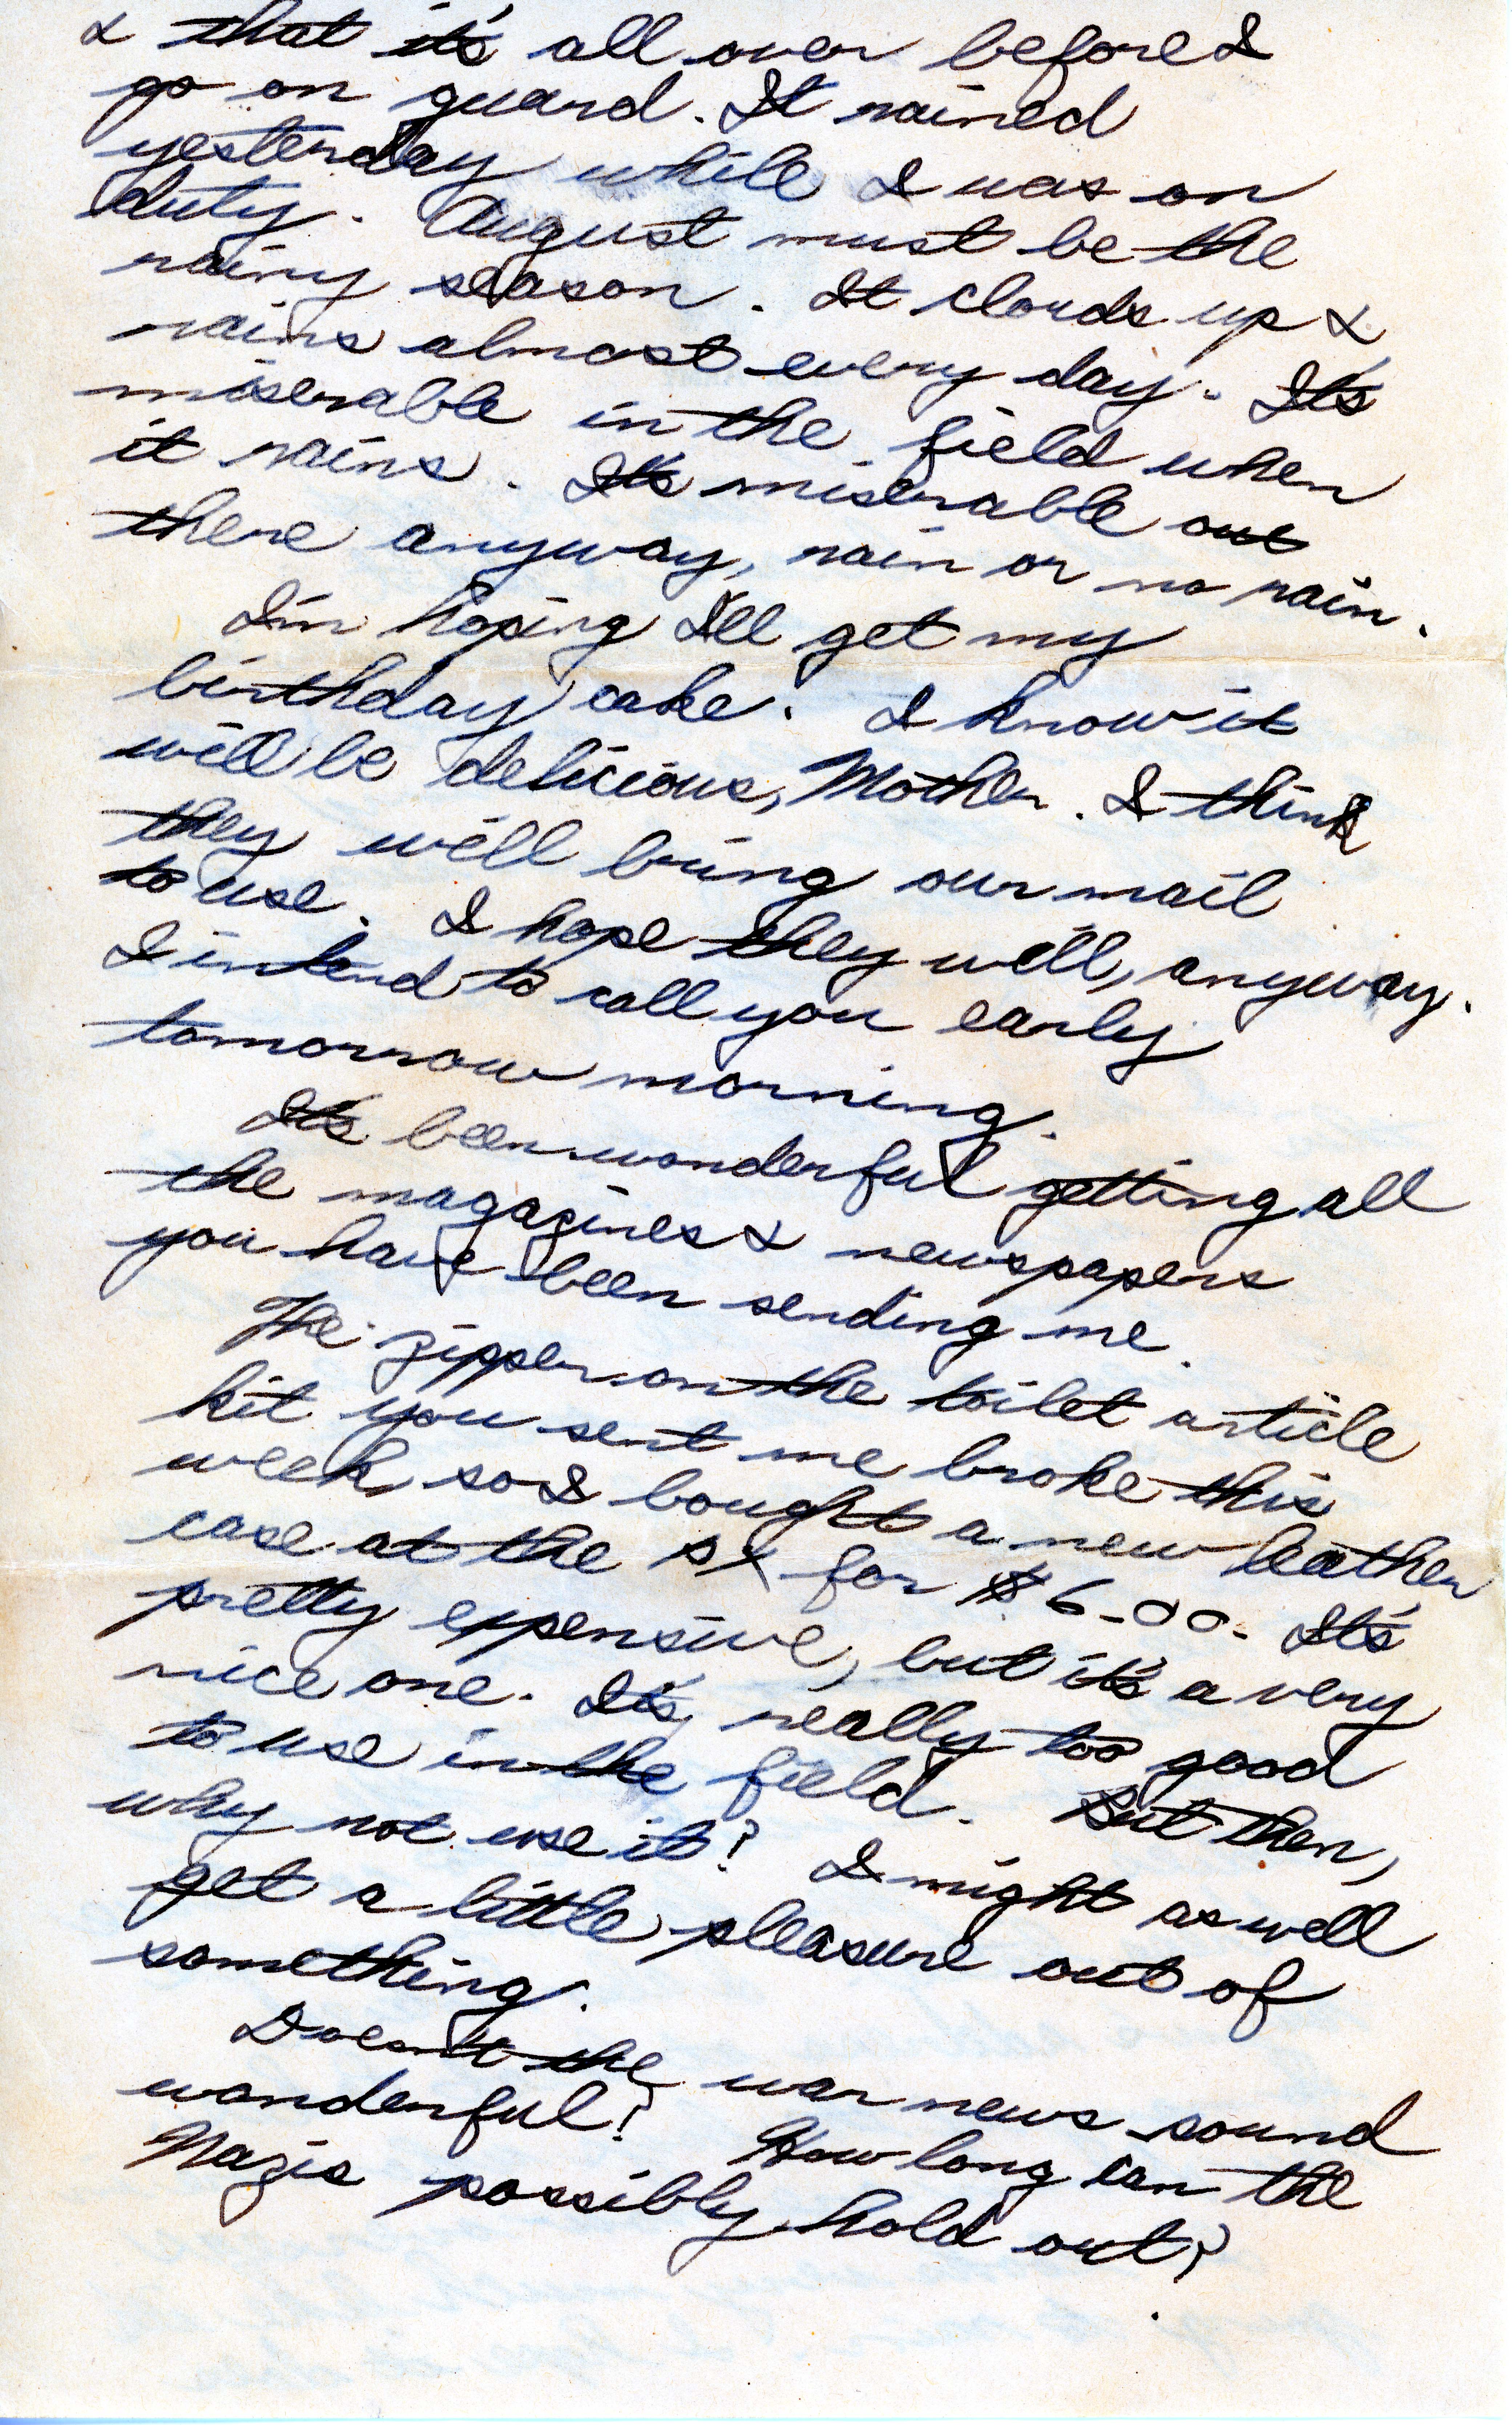 & that it's all over before I
go on guard. It rained
yesterday while I was on
duty. August must be the
rainy season. It clouds up &
rains almost every day. It's
miserable in the field when
it rains. It's miserable out
there anyway, rain or no rain.
I'm hoping I'll get my
birthday cake. I know it
will be delicious, Mother. I think
they will bring our mail
to use. I hope they will, anyway.
I intend to call you early
tomorrow morning.
It's been wonderful getting all
the magazines & newspapers
you have been sending me.
The zipper on the toilet article
kit you sent me broke this
week so I bought a new leather
case at the PX for $6.00. It's
pretty expensive, but it's a very
nice one. It's really too good
to use in the field. But then,
why not use it? I might as well
get a little pleasure out of
something.
Doesn't the war news sound
wonderful? How long can the
Nazis possibly hold out?